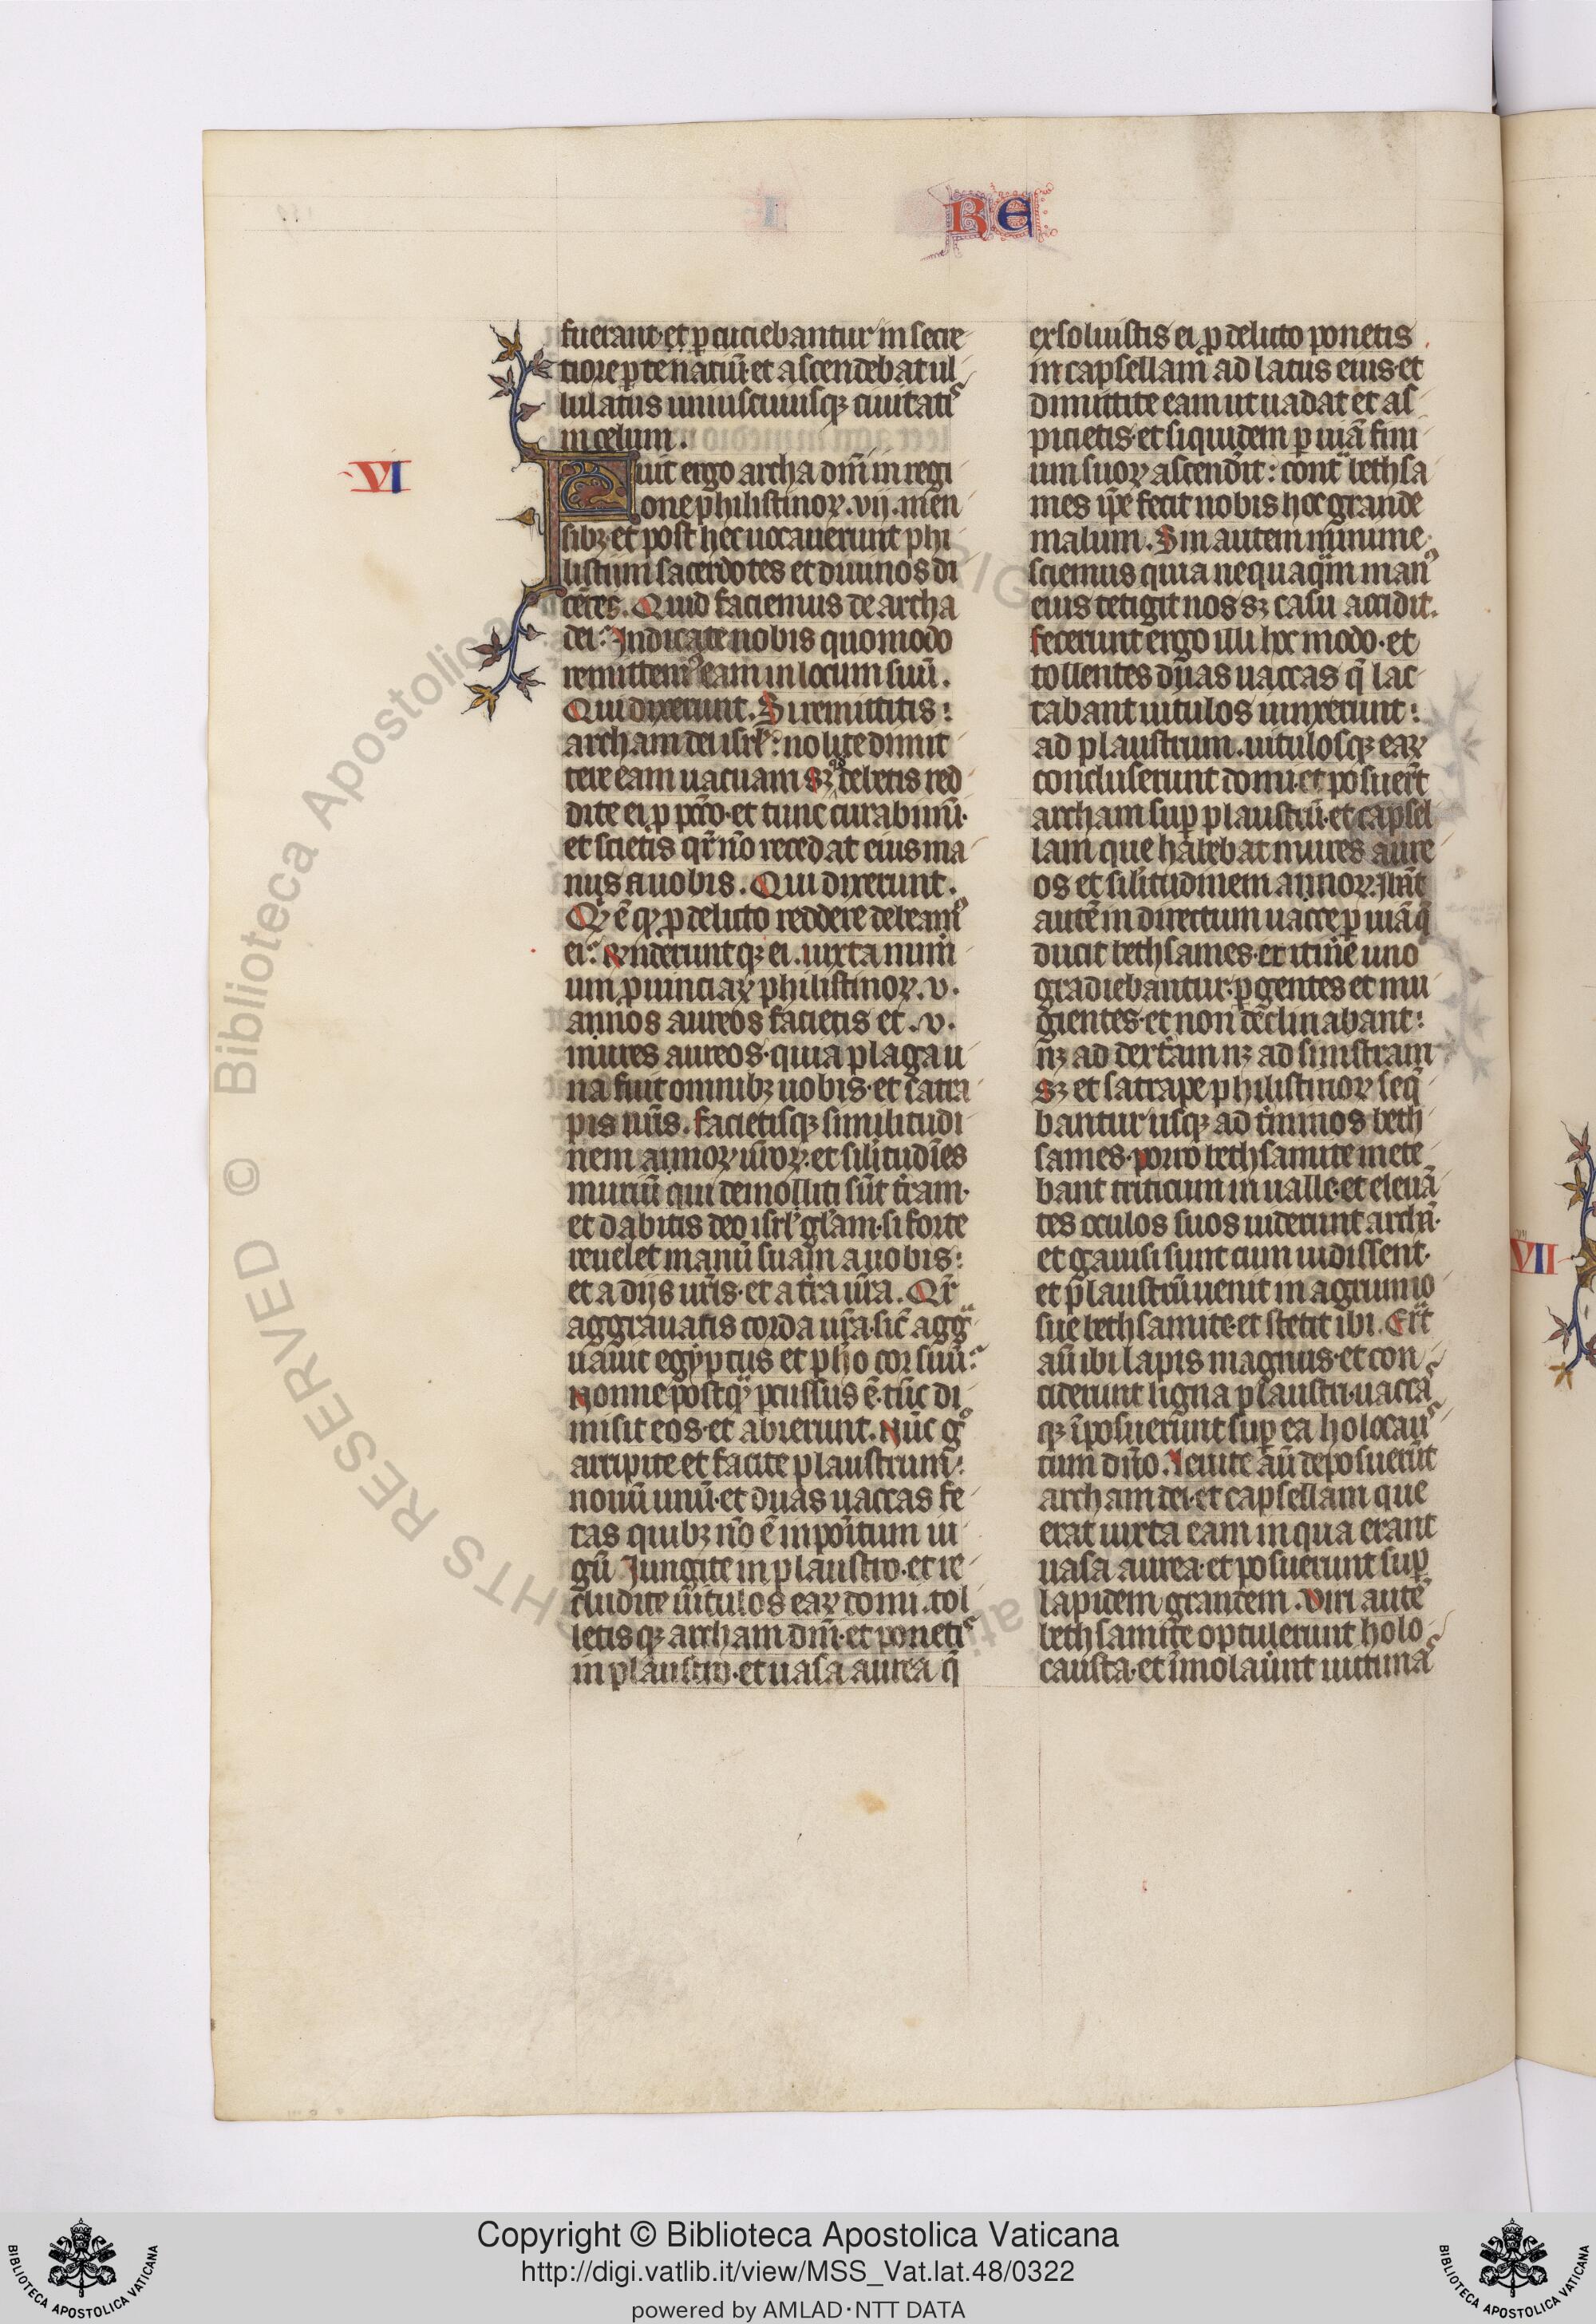 RE
fuerant·et ꝑcuciebantur in secre
tiore ꝑte natiū·et ascendebat ul
lulatus uniuscuiusqꝫ ciuitatꝭ
in celum.
VI
Fuit ergo archa dn̄i in regi
one philistinoꝝ.vij.men
sibꝫ·et post hec uocauerunt phi
listijm sacerdotes et diuinos di
cētes. Quid faciemus de archa
dei? Indicate nobis quomodo
remittemꝰ eam in locum suū.
Qui dixerunt. Si remittitis:
archam dei isrl̓: nolite dimit
tere eam uacuam sꝫ qd̓ debetis red
dite ei ꝓ pctō·et tunc curabimī·
et scietis qr̄ nō recedat eius ma
nus a uobis. Qui dixerunt.
Qͥd ē qd̓ ꝓ delicto reddere debeamꝰ
ei? Rn̄deruntqꝫ ei. iuxta num̄
um ꝓuinciaꝝ philistinoꝝ.v.
annos aureos facietis et.v.
mures aureos·quia plaga u
na fuit omnibꝫ uobis·et satra
pis ur̄is. facietisqꝫ similitudi
nem annoꝝ ur̄oꝝ·et sil̓itudīes
muriū qui demolliti sūt t̄ram·
et dabitis deo isrl̓ gl̓am·si forte
reuelet manū suam a uobis:
et a dijs ur̄is·et a t̄ra ur̄a. Qr̄
aggrauatis corda ur̄a·sic̄ aggͣ
uauit egyptus et ph̄o cor suū?
Nonne postqͣ ꝑcussus ē·tūc di
misit eos·et abierunt. Nūc gͦ
arripite et facite plaustrum:
nouū unū·et duas uaccas fe
tas quibꝫ nō ē inpoītum iu
gū Iungite in plaustro·et re
cludite uitulos eaꝝ domi. tol
letisqꝫ archam dn̄i·et ponetꝭ
in plaustro·et uasa aurea q̄
exsoluistis ei ꝓ delicto ponetis
in capsellam ad latus eius·et
dimittite eam ut uadat et as
picietis·et siquidem ꝑ uiā fini
um suoꝝ ascendīt: contͣ bethsa
mes ip̄e fecit nobis hoc grande
malum. Sin autem minime
sciemus quia nequaqͣm manꝰ
eius tetigit nos sꝫ casu accidit.
fecerunt ergo illi hoc modo·et
tollentes duas uaccas q̄ lac
tabant uitulos iunxerunt:
ad plaustrum. uitulosqꝫ eaꝝ
concluserunt domi·et posuer̄t
archam suꝑ plaustrū·et capsel
lam que habebat mures aure
os et sil̓itudinem annoꝝ·Ibāt
autē in directum uacce ꝑ uiā q̄
ducit bethsames·et itin̄e uno
gradiebantur·ꝑgentes et mu
gientes·et non declinabant:
nꝫ ad dext̄am nꝫ ad sinistram
sꝫ et satrape philistinoꝝ seq̄
bantur usqꝫ ad t̄minos beth
sames·porro bethsamite mete
bant triticum in ualle·et eleuā
tes oculos suos uiderunt archā·
et gauisi sunt cum uidissent·
et plaustrū uenit in agrum io
sue bethsamite·et stetit ibi. Erͣt
aū ibi lapis magnus·et con
ciderunt ligna plaustri·uaccaꝭ
qꝫ īposuerunt suꝑ ea holocauꝭ
tum dn̄o. leuite aū deposuerūt
archam dei·et capsellam que
erat iuxta eam in qua erant
uasa aurea·et posuerunt suꝑ
lapidem grandem. Viri autē
bethsamite optulerunt holo
causta·et īmolaūnt uictimaꝭ
VII
Copyright © Biblioteca Apostolica Vaticana
http://digi.vatlib.it/view/MSS_Vat.lat.48/0322
powered by AMLAD·NTT DATA
BIBLIOTECA APOSTOLICA VATICANA
BIBLIOTECA APOSTOLICA VATICANA